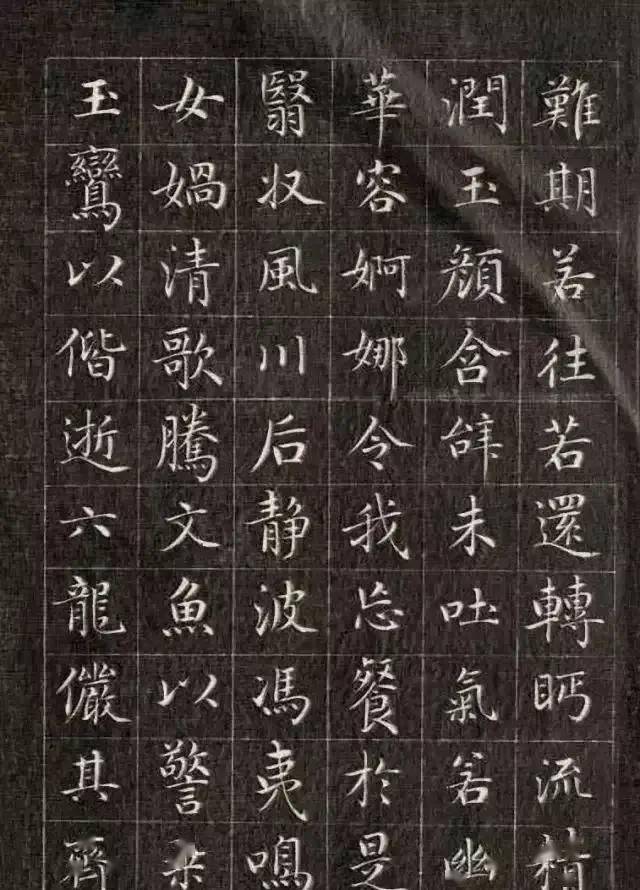 難期若往若還轉眄流精
潤玉顏含辭未吐氣若幽
華容婀娜令我忘餐於是
翳収風川后静波馮夷鳴
女媧清歌騰文魚以警乘
玉鸞以偕逝六龍儼其齊